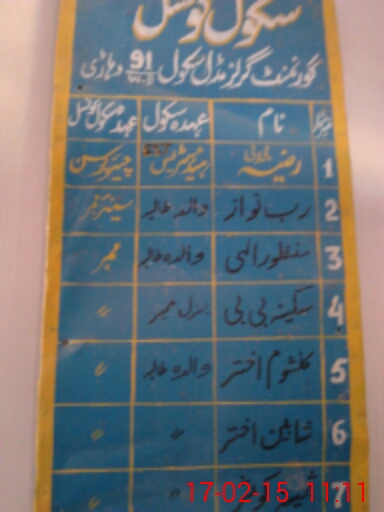 سکول کونسل
گورنمنٹ گرلز مڈل سکول 91 W.B وہاڑی
نام عہدہ سکول عہدہ سکول کونسل
1 رضیہ ہیڈمسٹریس چیئرپرسن
2 رب نواز والد طالبہ سینئر ممبر
3 منظور الہی والدہ طالبہ ممبر
4 سکینہ بی بی جنرل ممبر 〃
5 کلثوم اختر والدہ طالبہ 〃
6 شاہین اختر 〃 〃
7 کوثر 〃 〃
17-02-15 11:11